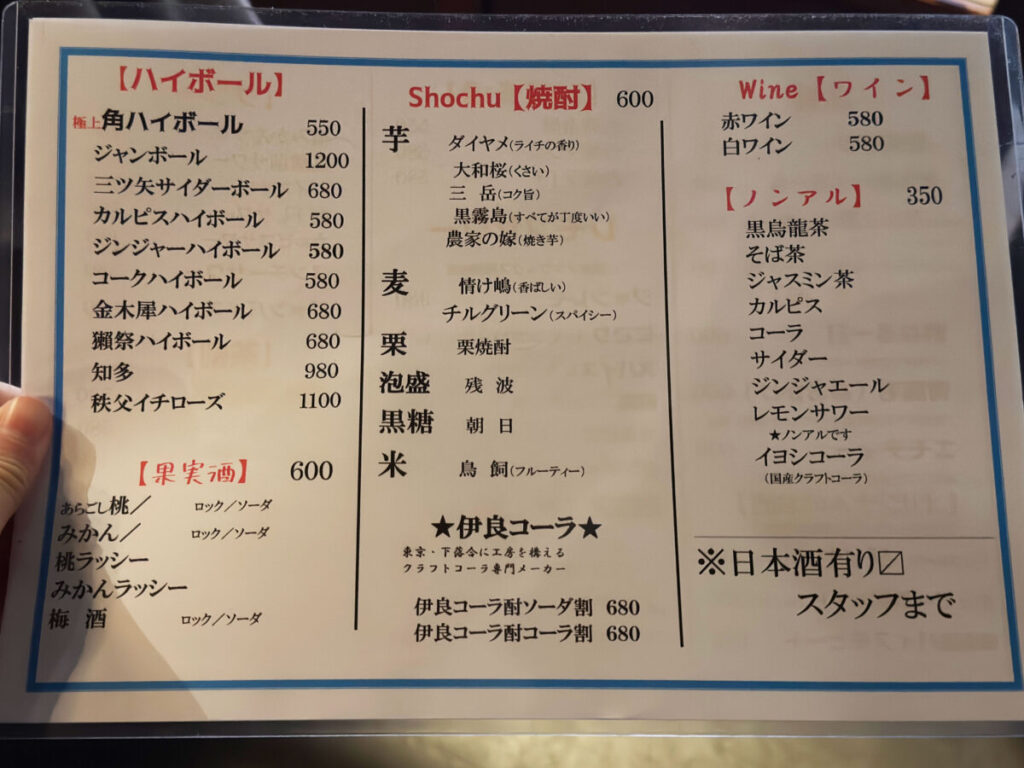 【ハイボール】
極上角ハイボール 550
ジャンボール 1200
三ツ矢サイダーボール 680
カルピスハイボール 580
ジンジャーハイボール 580
コークハイボール 580
金木犀ハイボール 680
獺祭ハイボール 680
知多 980
秩父イチローズ 1100
【果実酒】 600
あらごし桃／ ロック／ソーダ
みかん／ ロック／ソーダ
桃ラッシー
みかんラッシー
梅 酒 ロック／ソーダ
Shochu【焼酎】 600
芋 ダイヤメ(ライチの香り)
大和桜(くさい)
三 岳(コク旨)
黒霧島(すべてが丁度いい)
農家の嫁(焼き芋)
麦 情け嶋(香ばしい)
チルグリーン(スパイシー)
栗 栗焼酎
泡盛 残 波
黒糖 朝 日
米 鳥 飼(フルーティー)
★伊良コーラ★
東京・下落合に工房を構える
クラフトコーラ専門メーカー
伊良コーラ酎ソーダ割 680
伊良コーラ酎コーラ割 680
Wine【ワイン】
赤ワイン 580
白ワイン 580
【ノンアル】 350
黒烏龍茶
そば茶
ジャスミン茶
カルピス
コーラ
サイダー
ジンジャエール
レモンサワー
★ノンアルです
イヨシコーラ
(国産クラフトコーラ)
※日本酒有り〼
スタッフまで